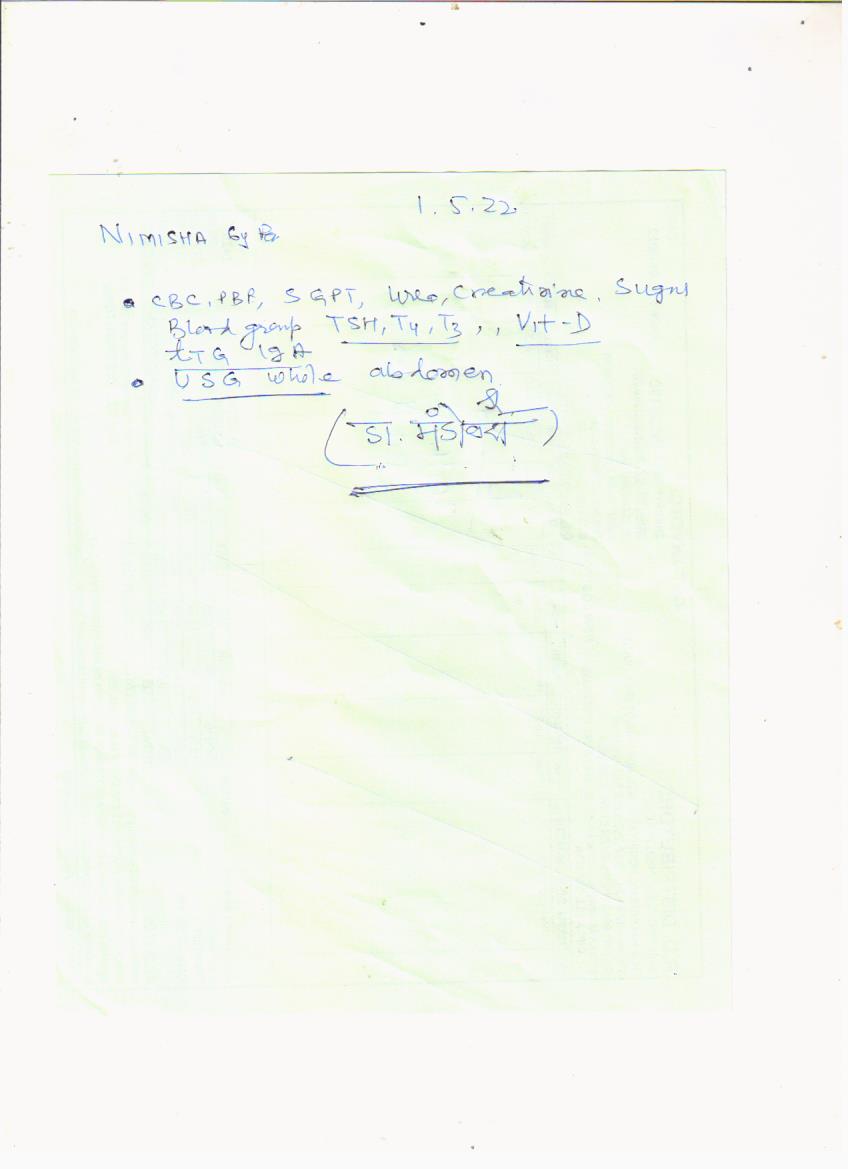 1.5.22
NIMISHA 6y
CBC, PBF, SGPT, Urea, Creatinine, Sugar
Blood group TSH, T4, T3,, Vit-D
tTG IgA
USG whole abdomen
(डा.